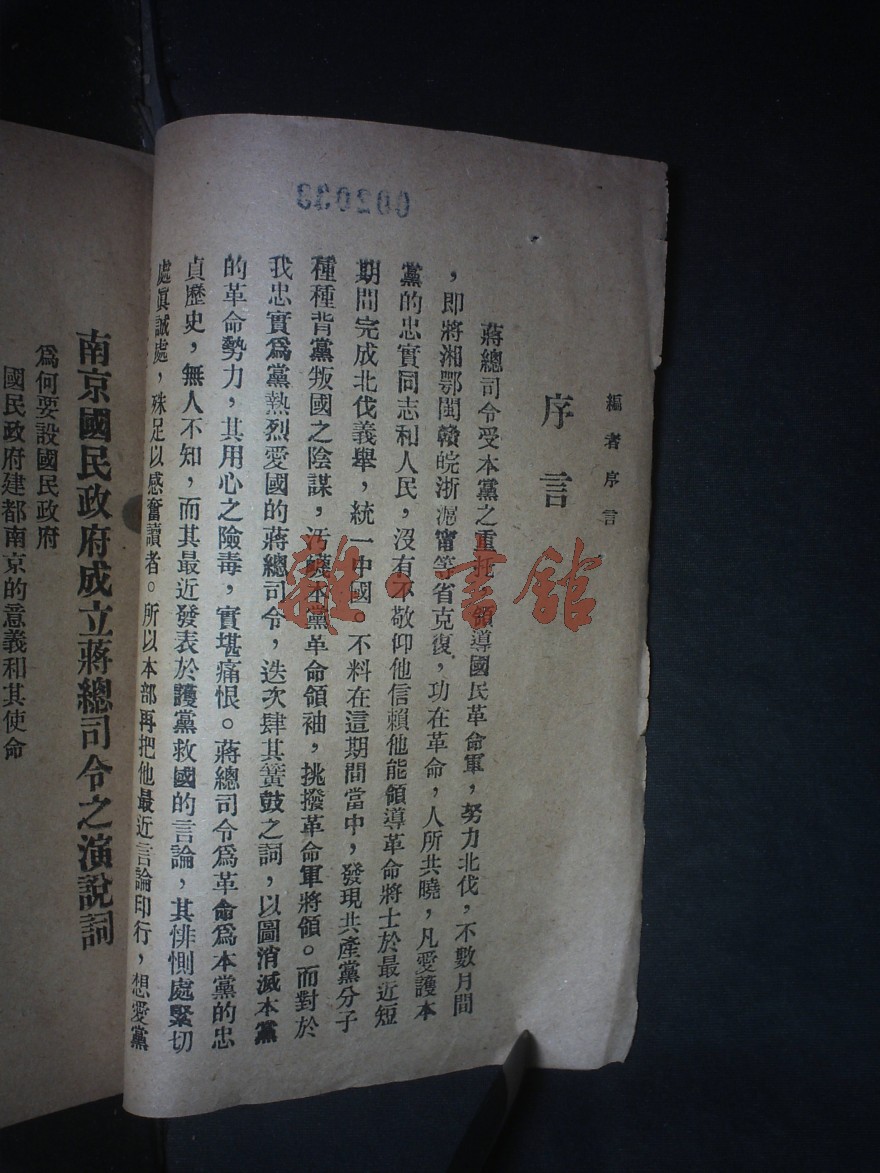 編者序言
序言
蔣總司令受本黨之重托，領導國民革命軍，努力北伐，不數月間
，即將湘鄂閩贛皖浙滬甯等省克復，功在革命，人所共曉，凡愛護本
黨的忠實同志和人民，沒有不敬仰他信賴他能領導革命將士於最近短
期間完成北伐義舉，統一中國。不料在這期間當中，發現共產黨分子
種種背黨叛國之陰謀，汚衊本黨革命領袖，挑撥革命軍將領。而對於
我忠實爲黨熱烈愛國的蔣總司令，迭次肆其簧鼓之詞，以圖消滅本黨
的革命勢力，其用心之險毒，實堪痛恨。蔣總司令爲革命爲本黨的忠
貞歷史，無人不知，而其最近發表於護黨救國的言論，其悱惻處緊切
處眞誠處，殊足以感奮讀者。所以本部再把他最近言論印行，想愛黨
南京國民政府成立蔣總司令之演說詞
爲何要設國民政府
國民政府建都南京的意義和其使命
002033
雜·書館